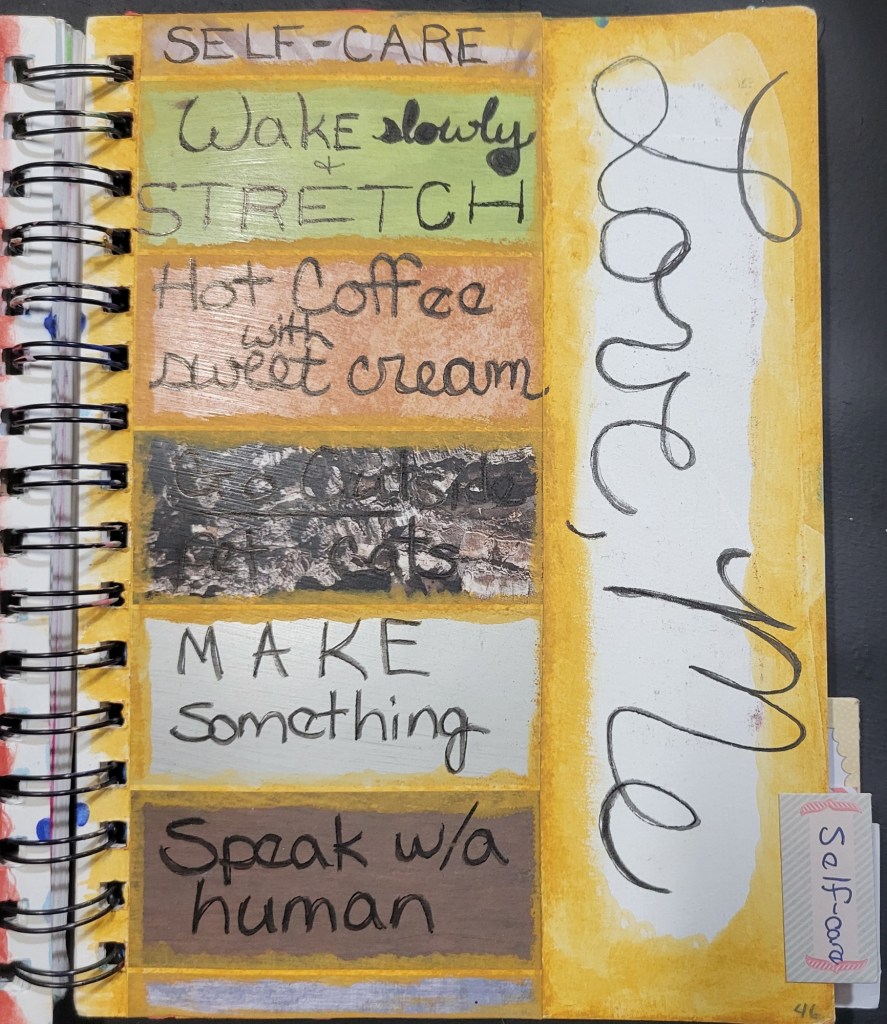 SELF-CARE
Wake slowly
+
STRETCH
Hot Coffee
with
sweet cream
Go Outside
Pet cats
MAKE
something
Speak w/a
human
Love, Me
Self-care
46